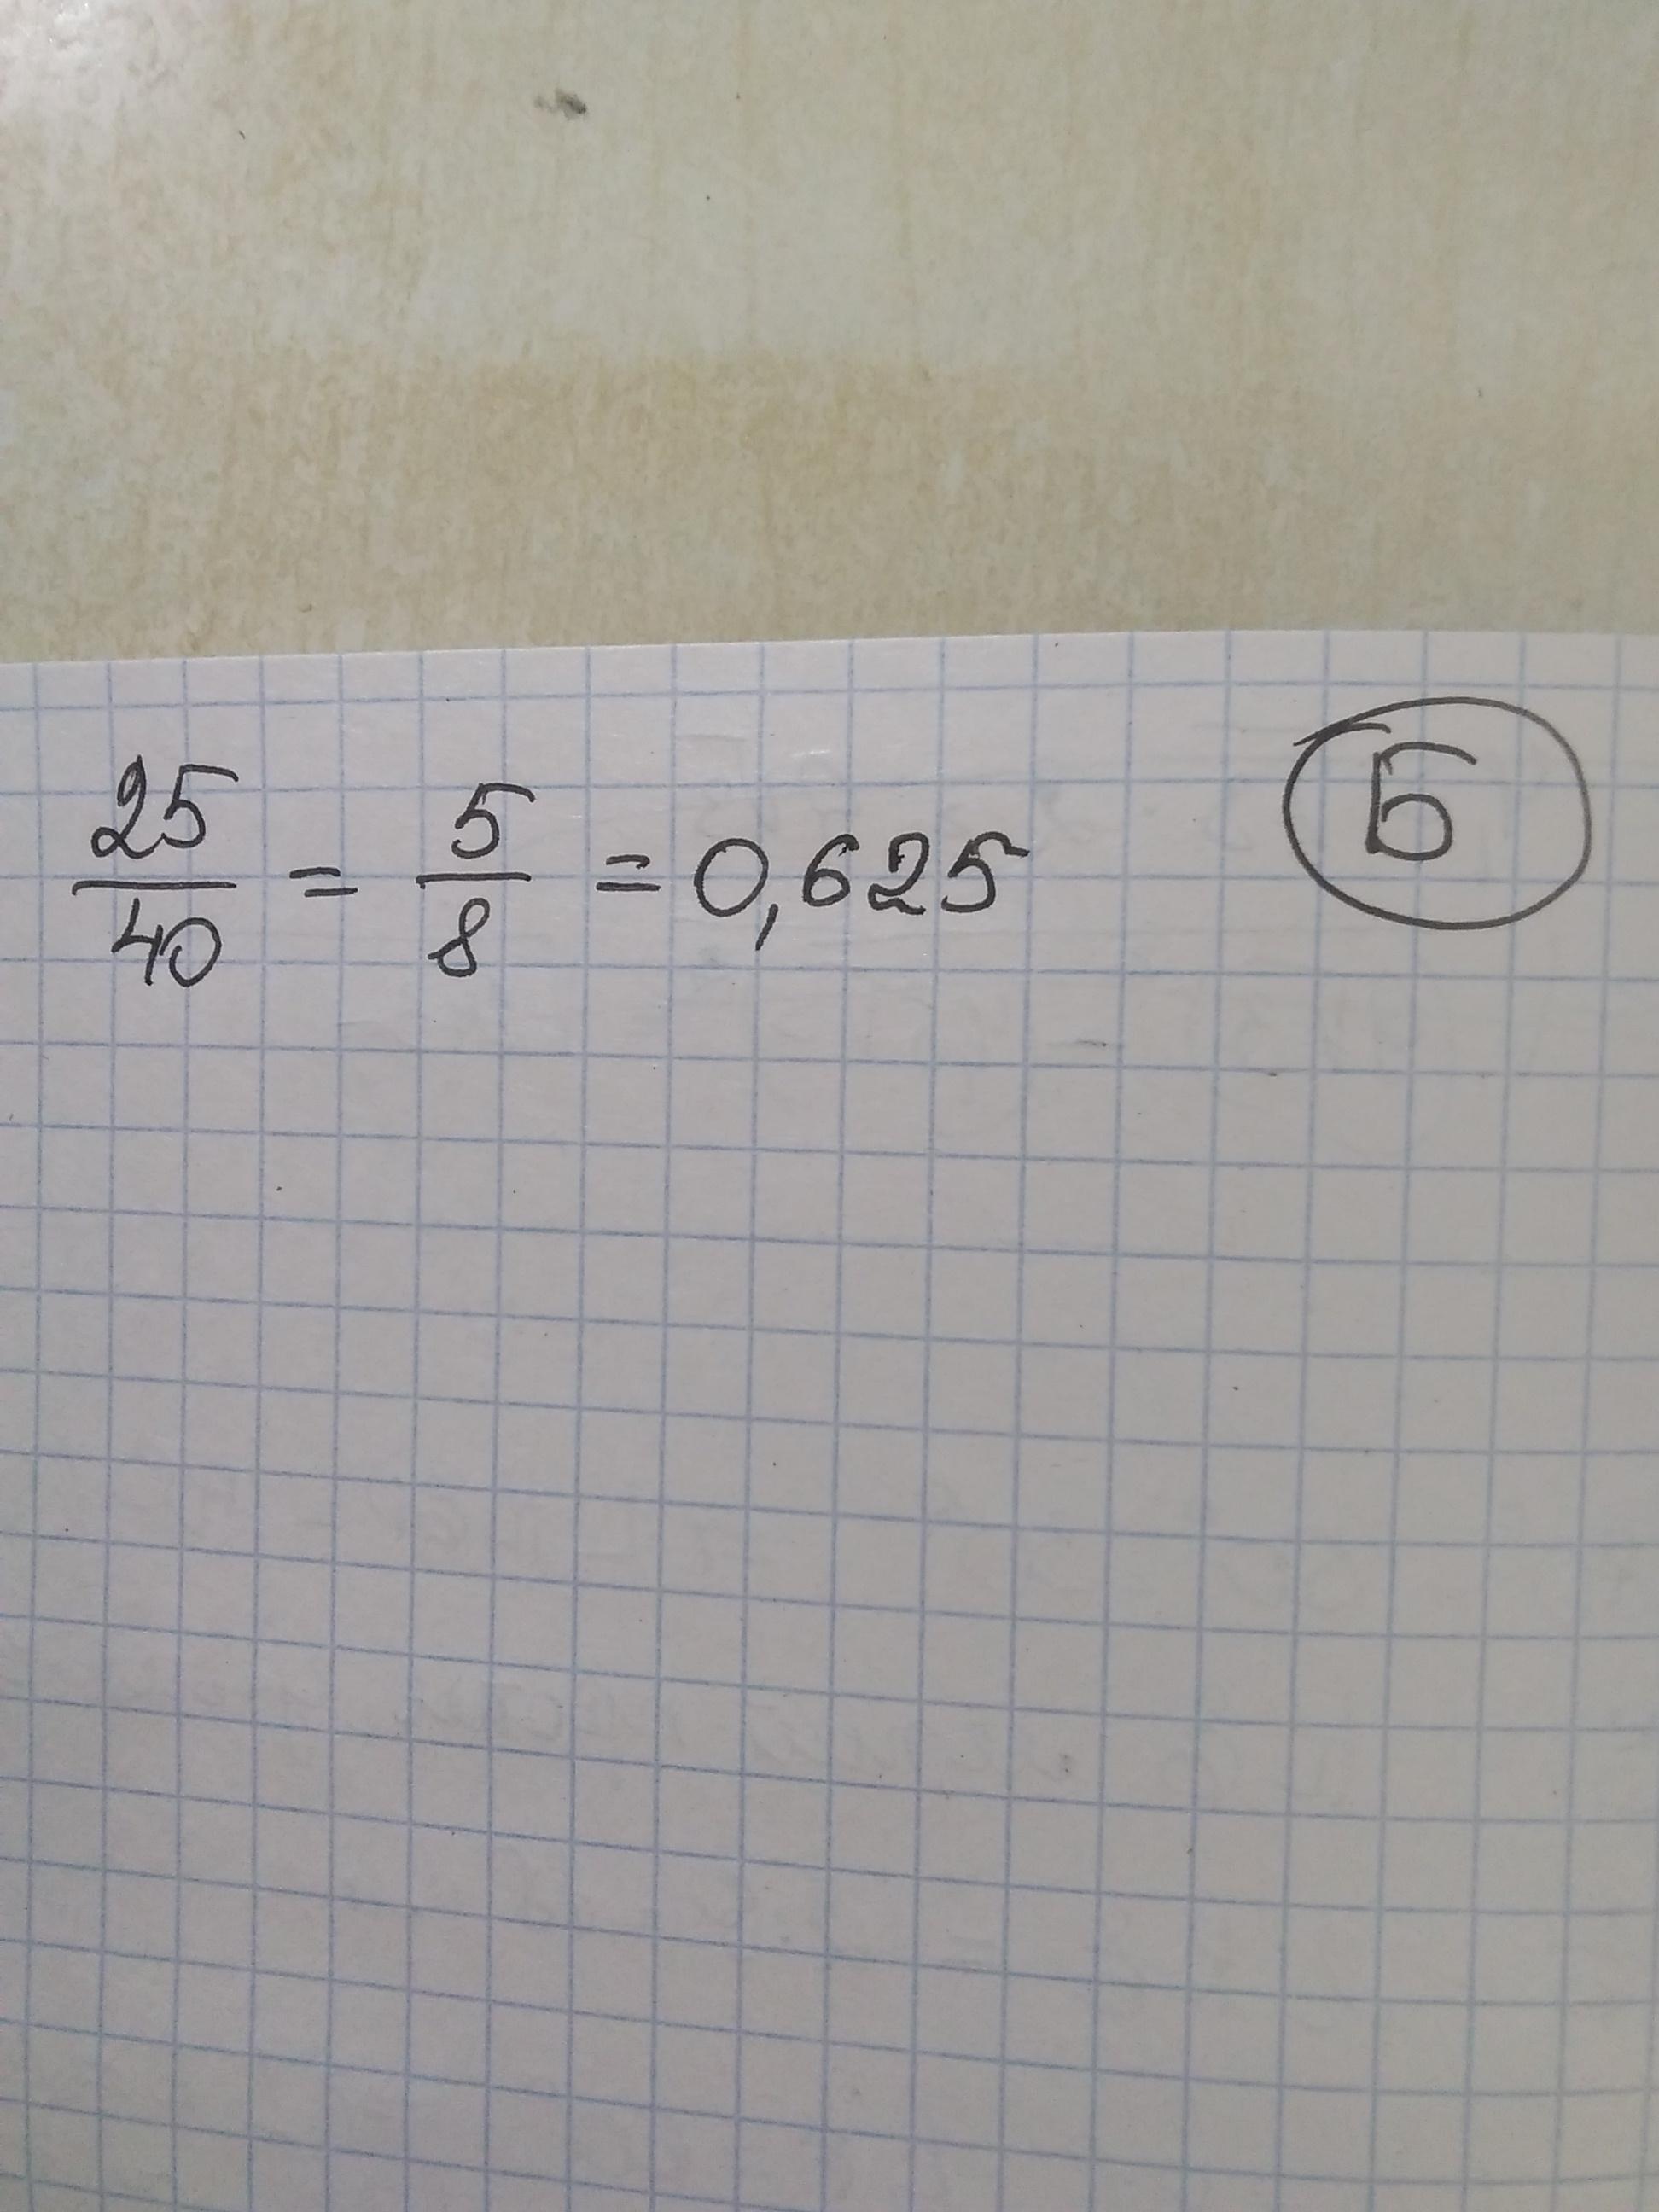 25/40 = 5/8 = 0,625
Б